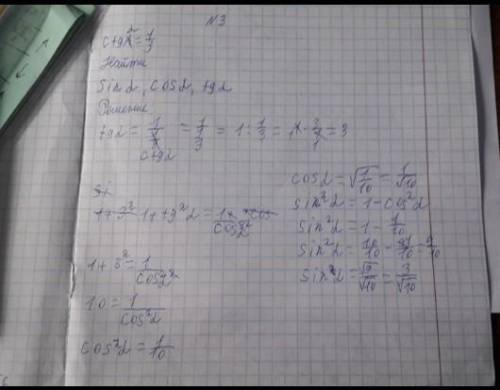 N3
ctgα = 1/3
Найти
sin α, cos α, tg α
Решение
tgα = 1/ctgα = 1/(1/3) = 1 : 1/3 = 1 · 3/1 = 3
1 + tg²α = 1/cos²α
1 + 3² = 1/cos²α
10 = 1/cos²α
cos²α = 1/10
cos α = √(1/10) = 1/√10
sin²α = 1 - cos²α
sin²α = 1 - 1/10
sin²α = 10/10 - 1/10 = 9/10
sin α = √9/√10 = 3/√10